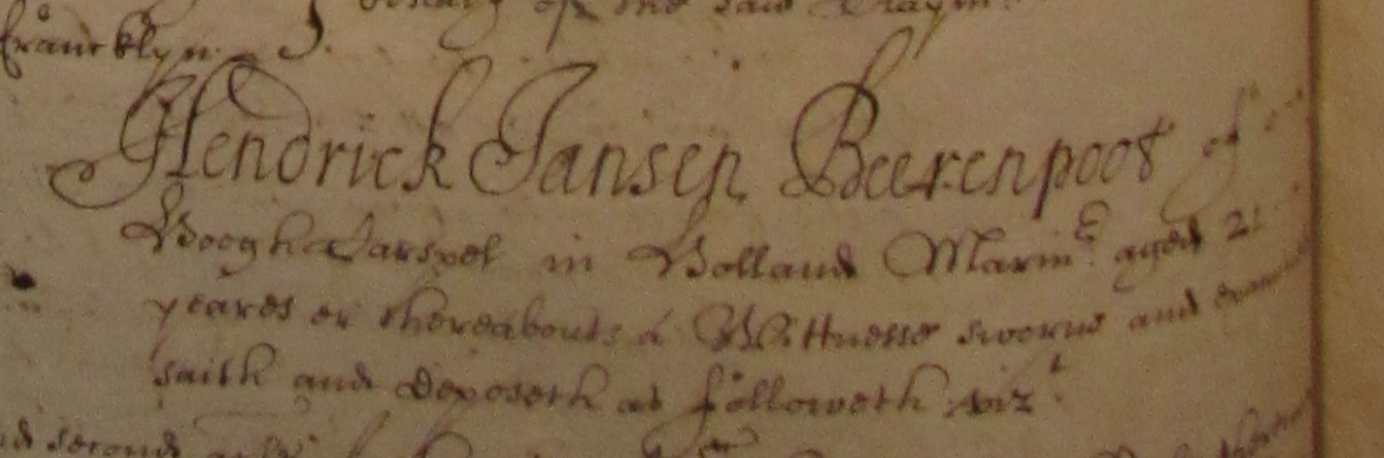 of the said
ffrancklyn. J.
Hendrick Jansen Beerenpoot of
Hoogh Carspel in Holland Marinr aged 21
yeares or thereabouts a Wittnesse sworne and
saith and deposeth as followeth vizt.
second